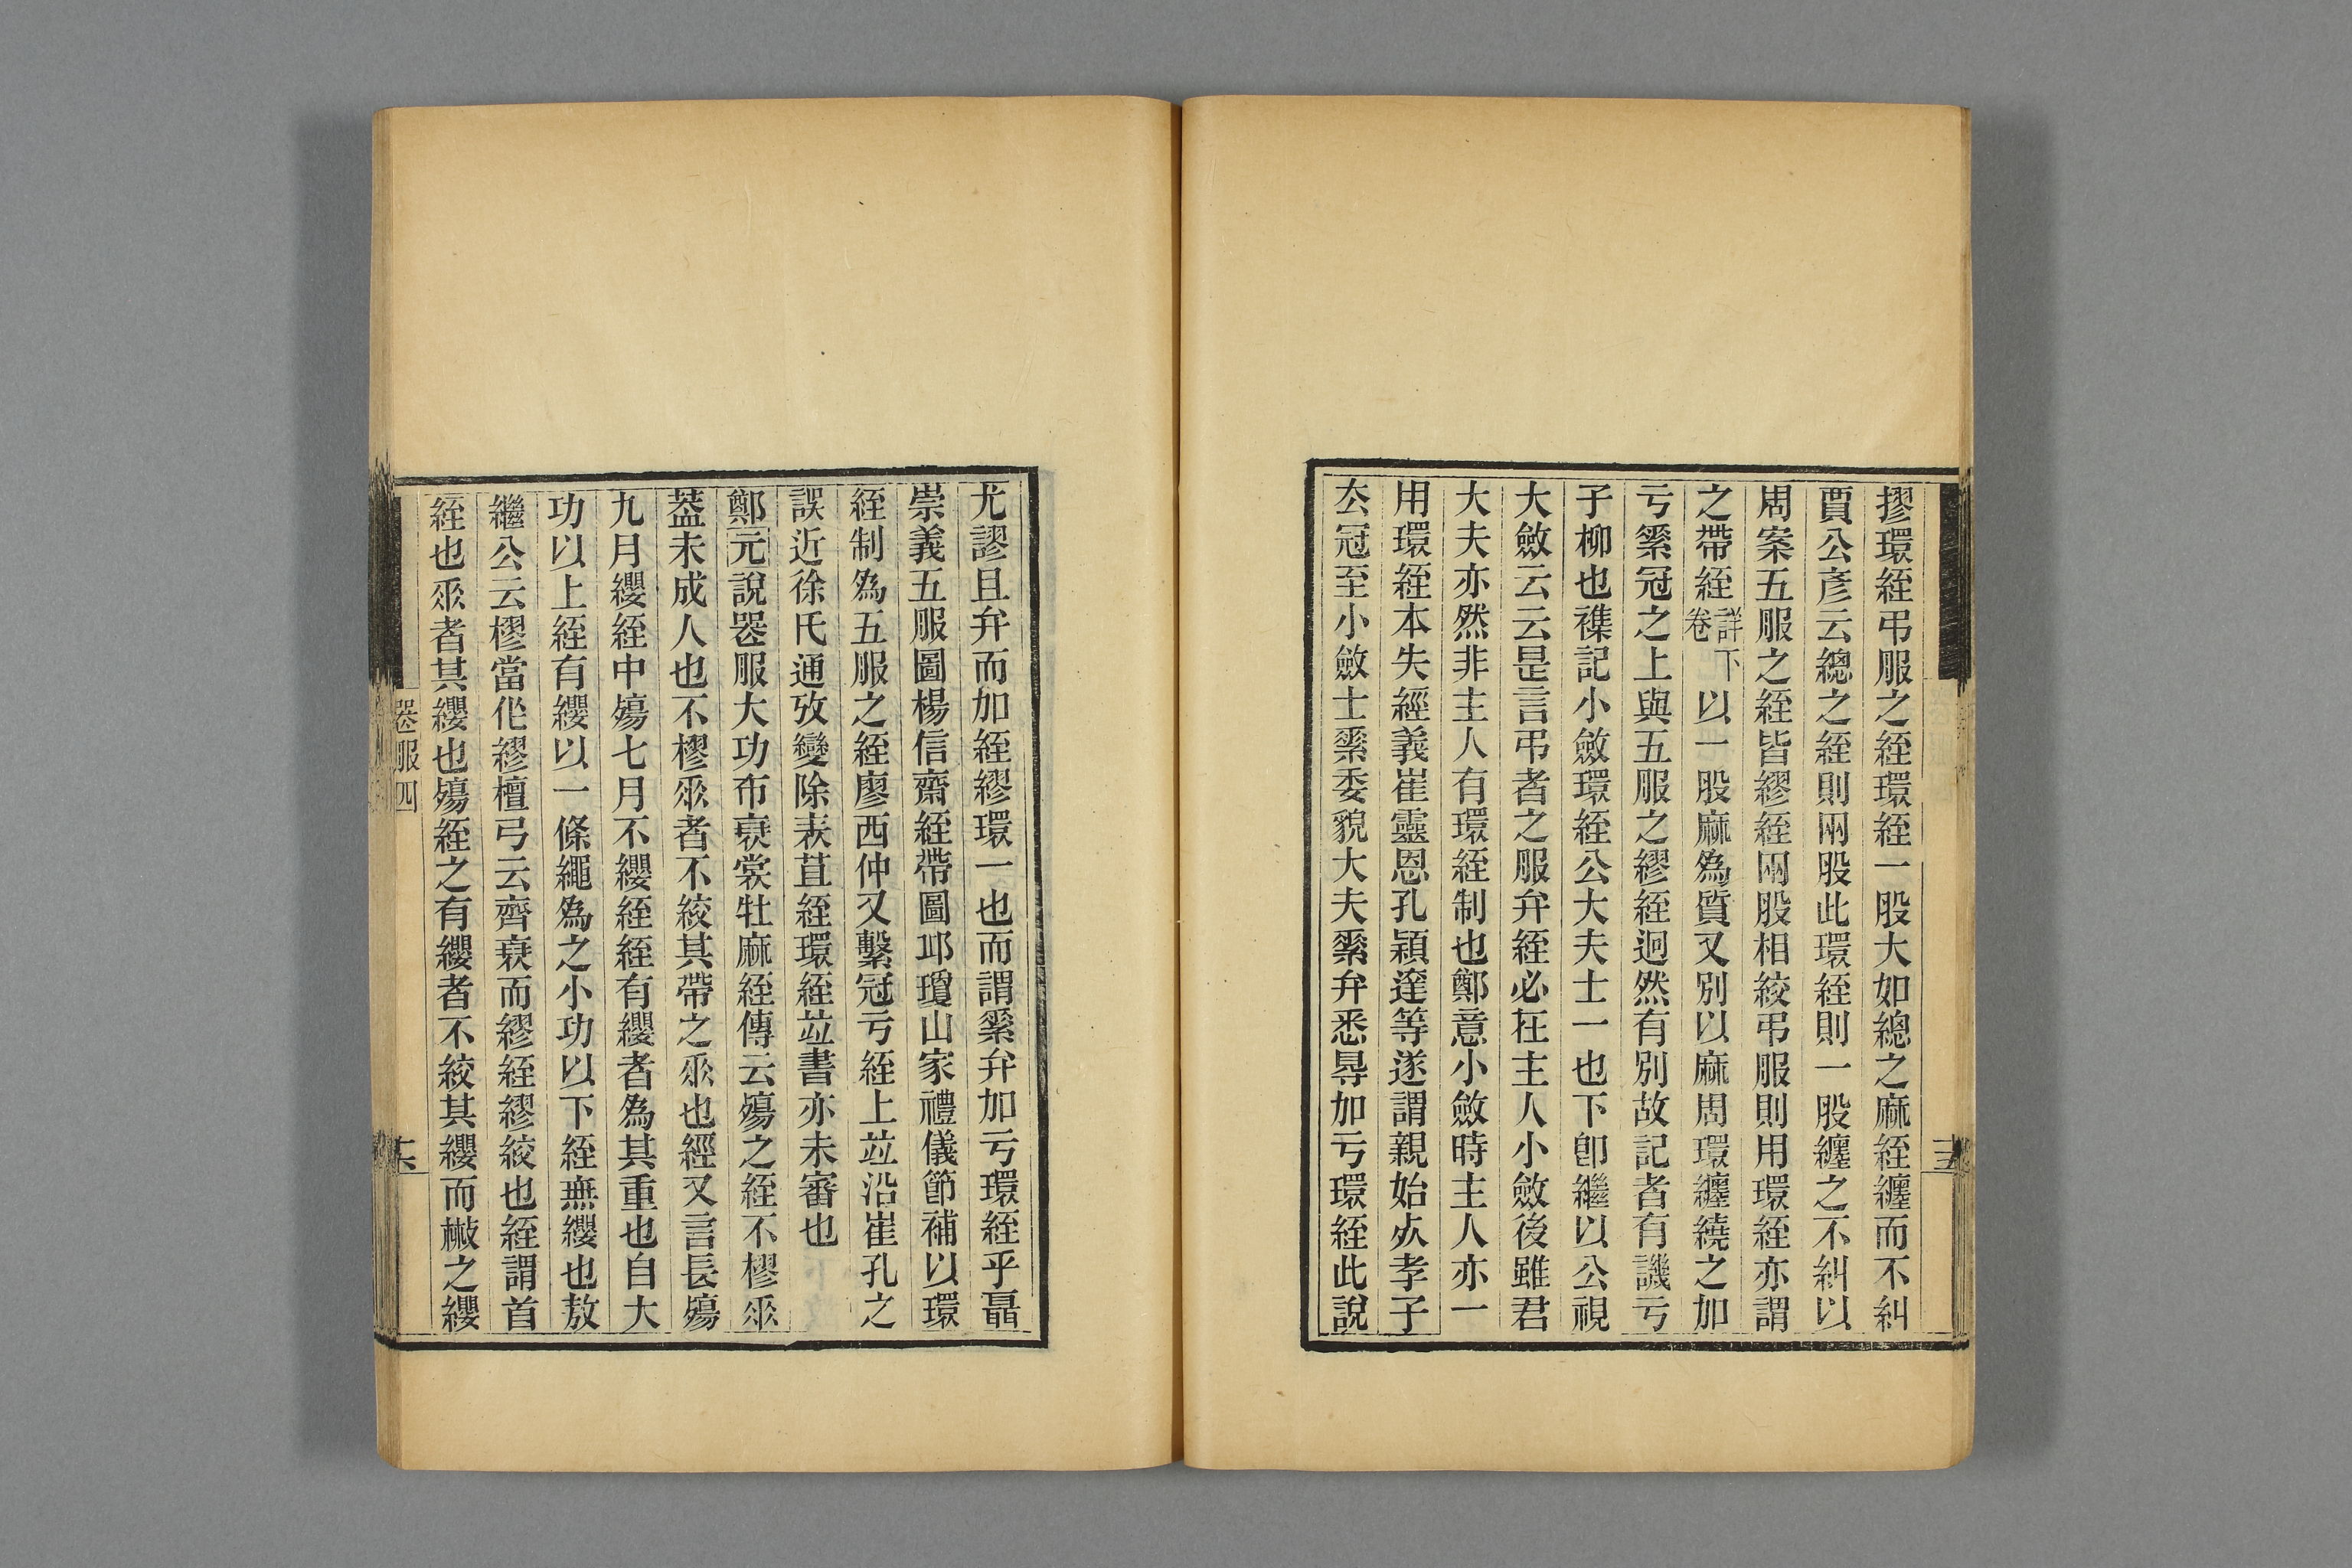 摎環絰弔服之絰環絰一股大如緦之麻絰纏而不糾
賈公彥云緦之絰則兩股此環絰則一股纏之不糾以
周案五服之絰皆繆絰兩股相絞弔服則用環絰亦謂
之帶絰詳下卷以一股麻為質又別以麻周環纏繞之加
亏䋤冠之上與五服之繆絰迥然有別故記者有譏亏
子柳也襍記小斂環絰公大夫士一也下卽繼以公視
大斂云云是言弔者之服弁絰必在主人小斂後雖君
大夫亦然非主人有環絰制也鄭意小斂時主人亦一
用環絰本失經義崔靈恩孔穎達等遂謂親始𣦸孝子
厺冠至小斂士䋤委貌大夫䋤弁悉㝵加亏環絰此說
尤謬且弁而加絰繆環一也而謂䋤弁加亏環絰乎聶
崇義五服圖楊信齋絰帶圖邱瓊山家禮儀節補以環
絰制為五服之絰廖西仲又繫冠亏絰上竝沿崔孔之
誤近徐氏通攷變除表苴絰環絰竝書亦未審也
鄭元說器服大功布衰裳牡麻絰傳云殤之絰不樛𠂹
葢未成人也不樛𠂹者不絞其帶之𠂹也經又言長殤
九月纓絰中殤七月不纓絰絰有纓者為其重也自大
功以上絰有纓以一條繩為之小功以下絰無纓也敖
繼公云樛當作繆檀弓云齊衰而繆絰繆絞也絰謂首
絰也𠂹者其纓也殤絰之有纓者不絞其纓而㪔之纓
服四